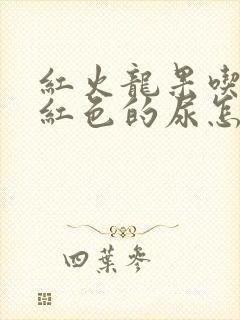 紅火龍果喫
紅色的尿怎
四葉參